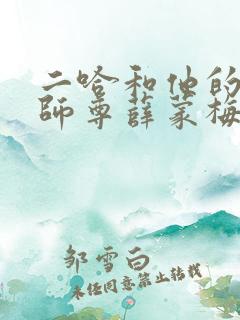 二哈和他的
師尊薛蒙梅
邹雪白
未经同意禁止转载